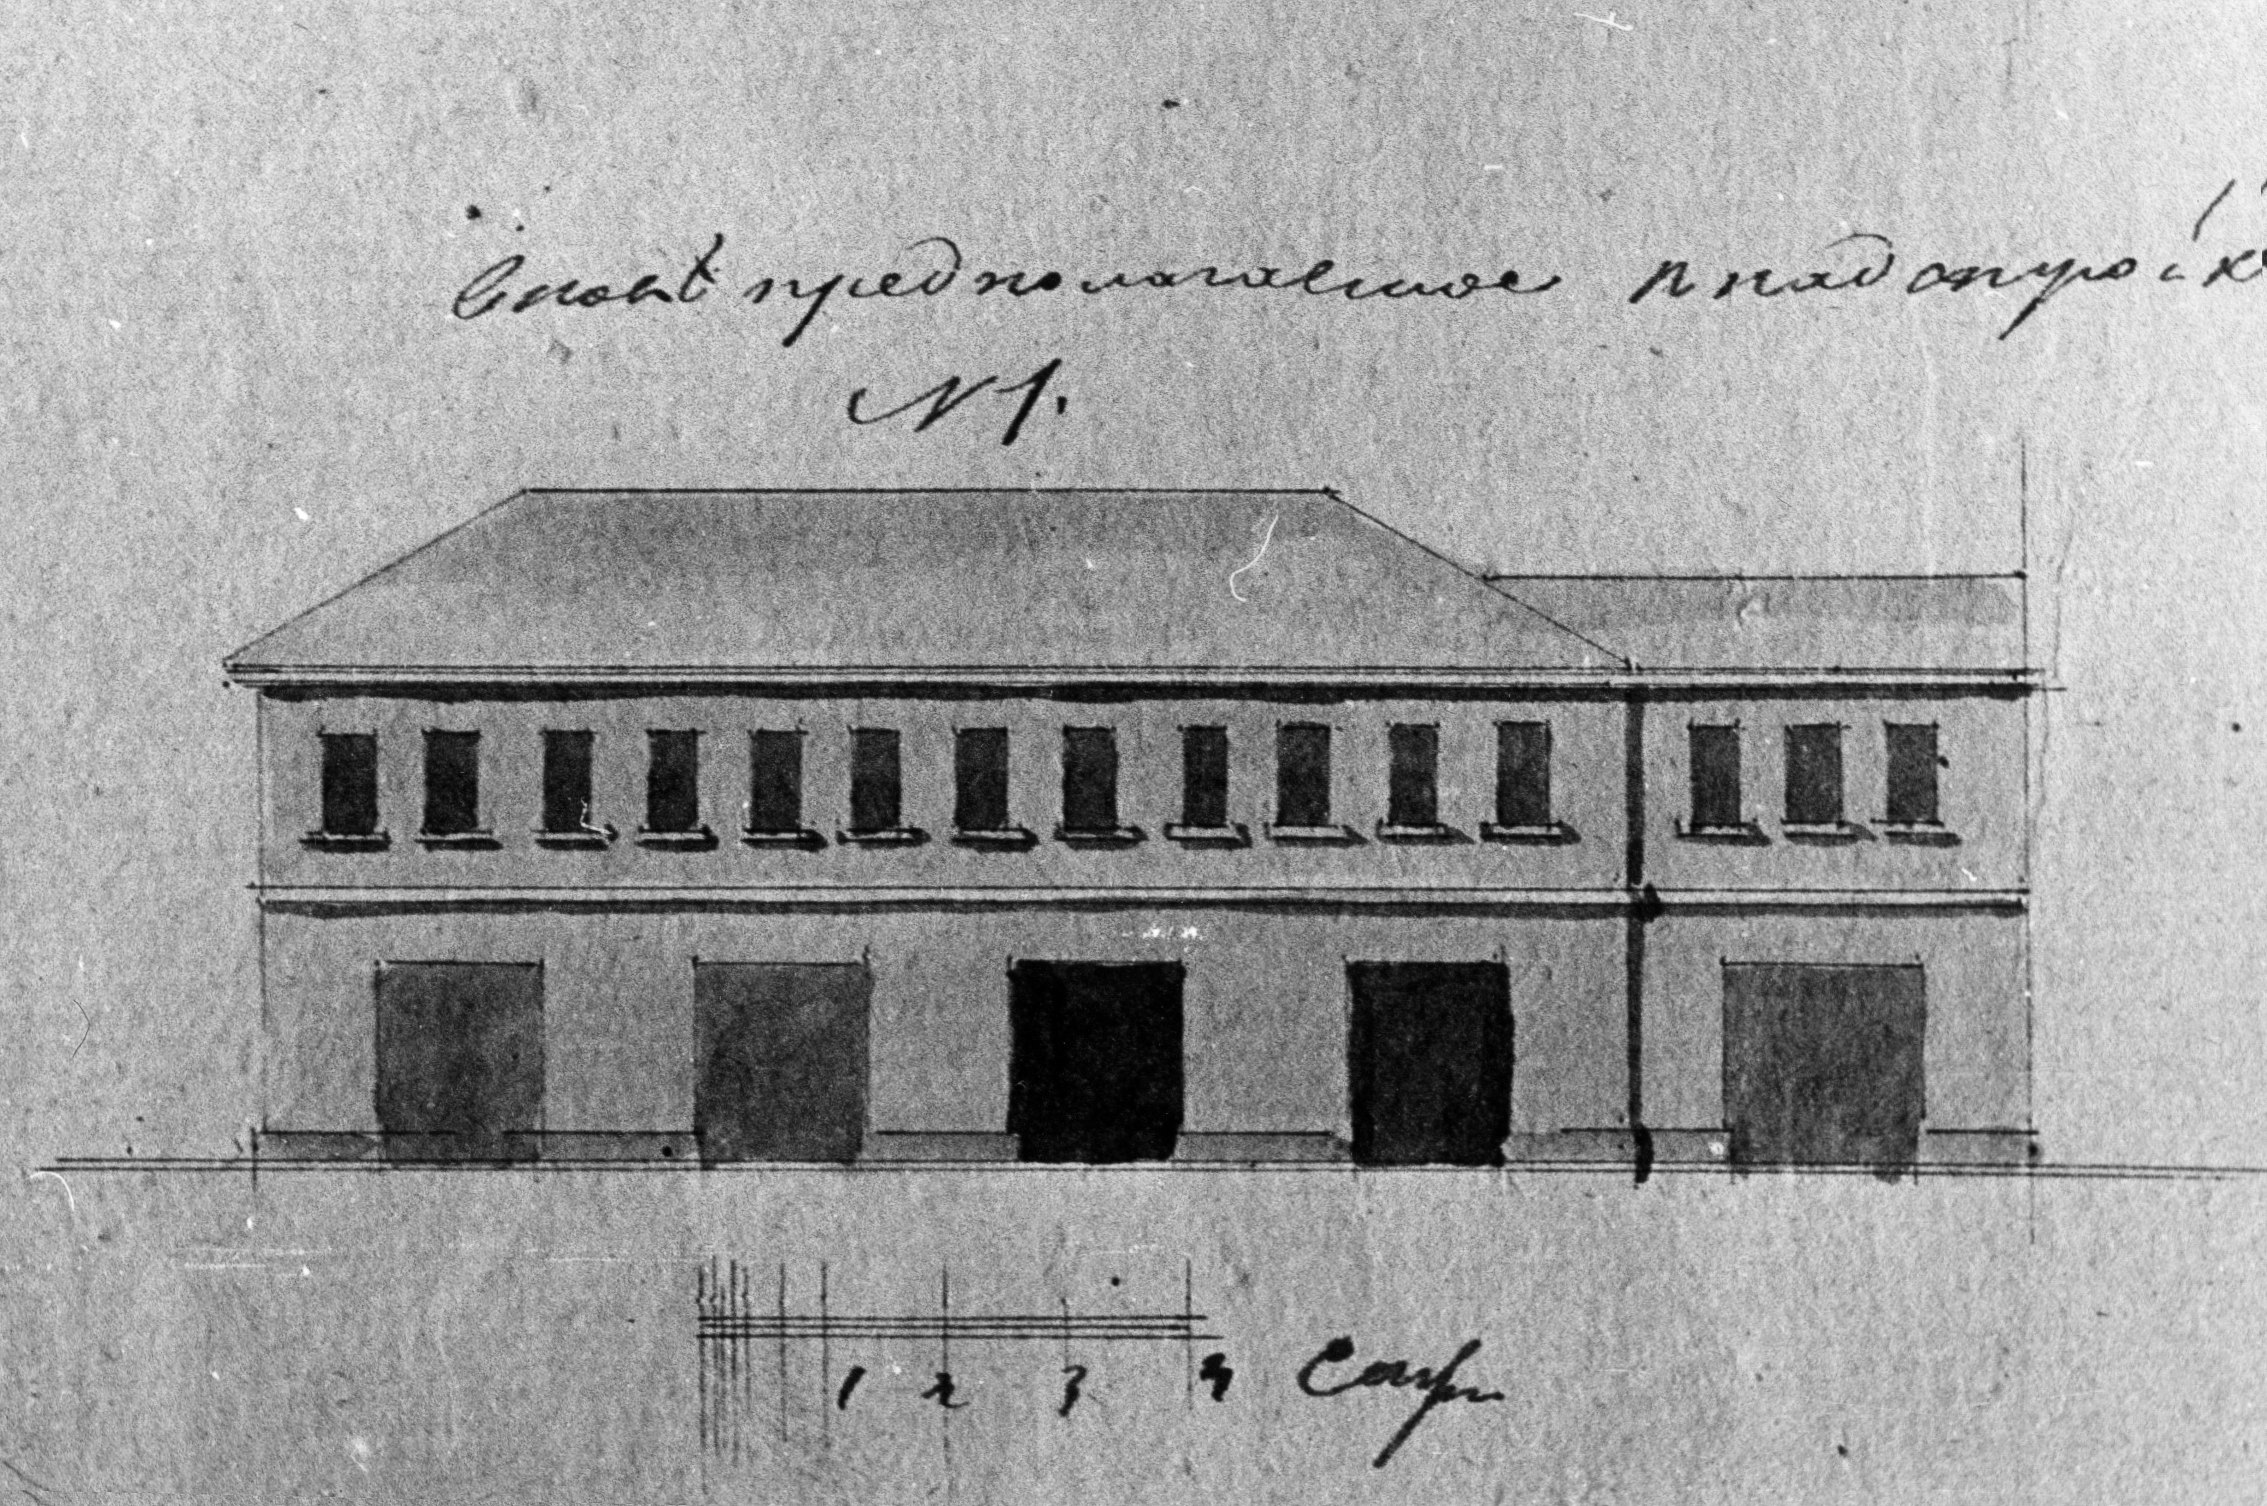 вновь предполагаемое к надстройк
N 1.
1 2 3 4 Саж.